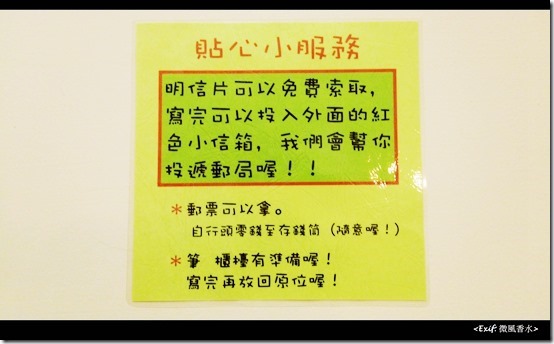 貼心小服務
明信片可以免費索取,
寫完可以投入外面的紅
色小信箱, 我們會幫你
投遞郵局喔!!
*郵票可以拿。
自行頭零錢至存錢筒 (隨意喔!)
*筆 櫃檯有準備喔!
寫完再放回原位喔!
<Exif: 微風香水>